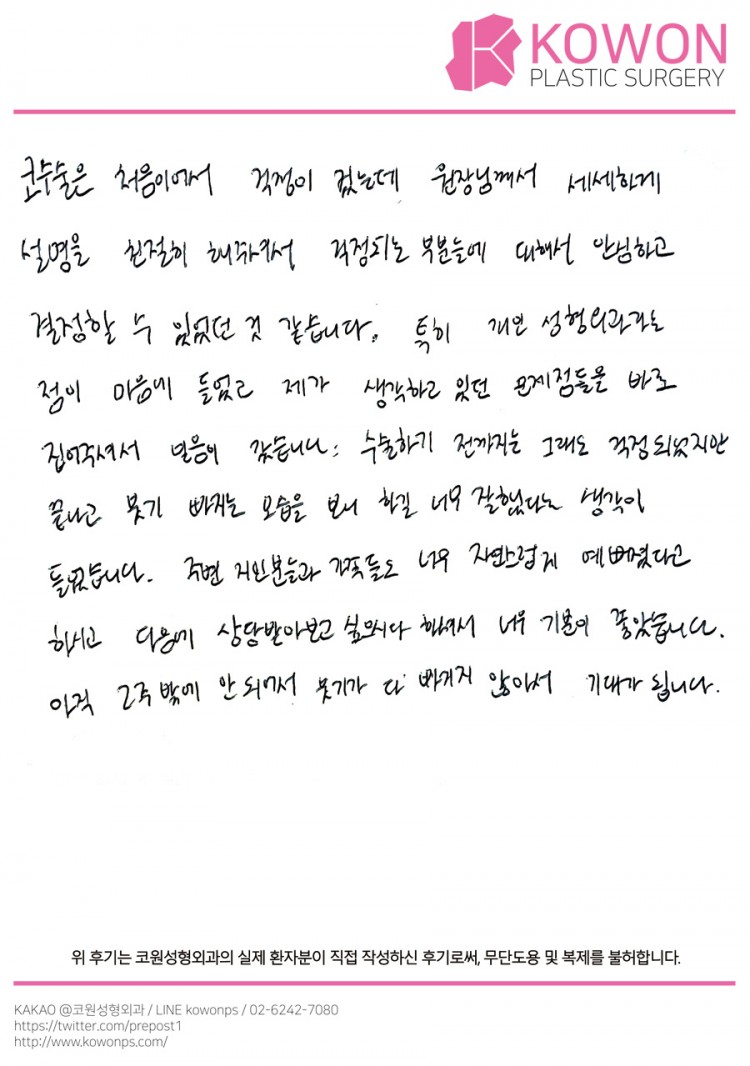 KOWON
PLASTIC SURGERY
코수술은 처음이어서 걱정이 컸는데 원장님께서 세세하게
설명을 친절히 해주셔서 걱정되는 부분들에 대해선 안심하고
결정할 수 있었던 것 같습니다. 특히 개인 성형외과라는
점이 마음에 들었고 제가 생각하고 있던 문제점들을 바로
집어주셔서 믿음이 갔습니다. 수술하기 전까지는 그래도 걱정되었지만
끝나고 붓기 빠지는 모습을 보니 하길 너무 잘했다는 생각이
들었습니다. 주변 지인분들과 가족들도 너무 자연스럽게 예뻐졌다고
하시고 다음에 상담받아보고 싶으시다 하셔서 너무 기분이 좋았습니다.
아직 2주 밖에 안 되어서 붓기가 다 빠지지 않아서 기대가 됩니다.
위 후기는 코원성형외과의 실제 환자분이 직접 작성하신 후기로써, 무단도용 및 복제를 불허합니다.
KAKAO @코원성형외과 / LINE kowonps / 02-6242-7080
https://twitter.com/prepost1
http://www.kowonps.com/